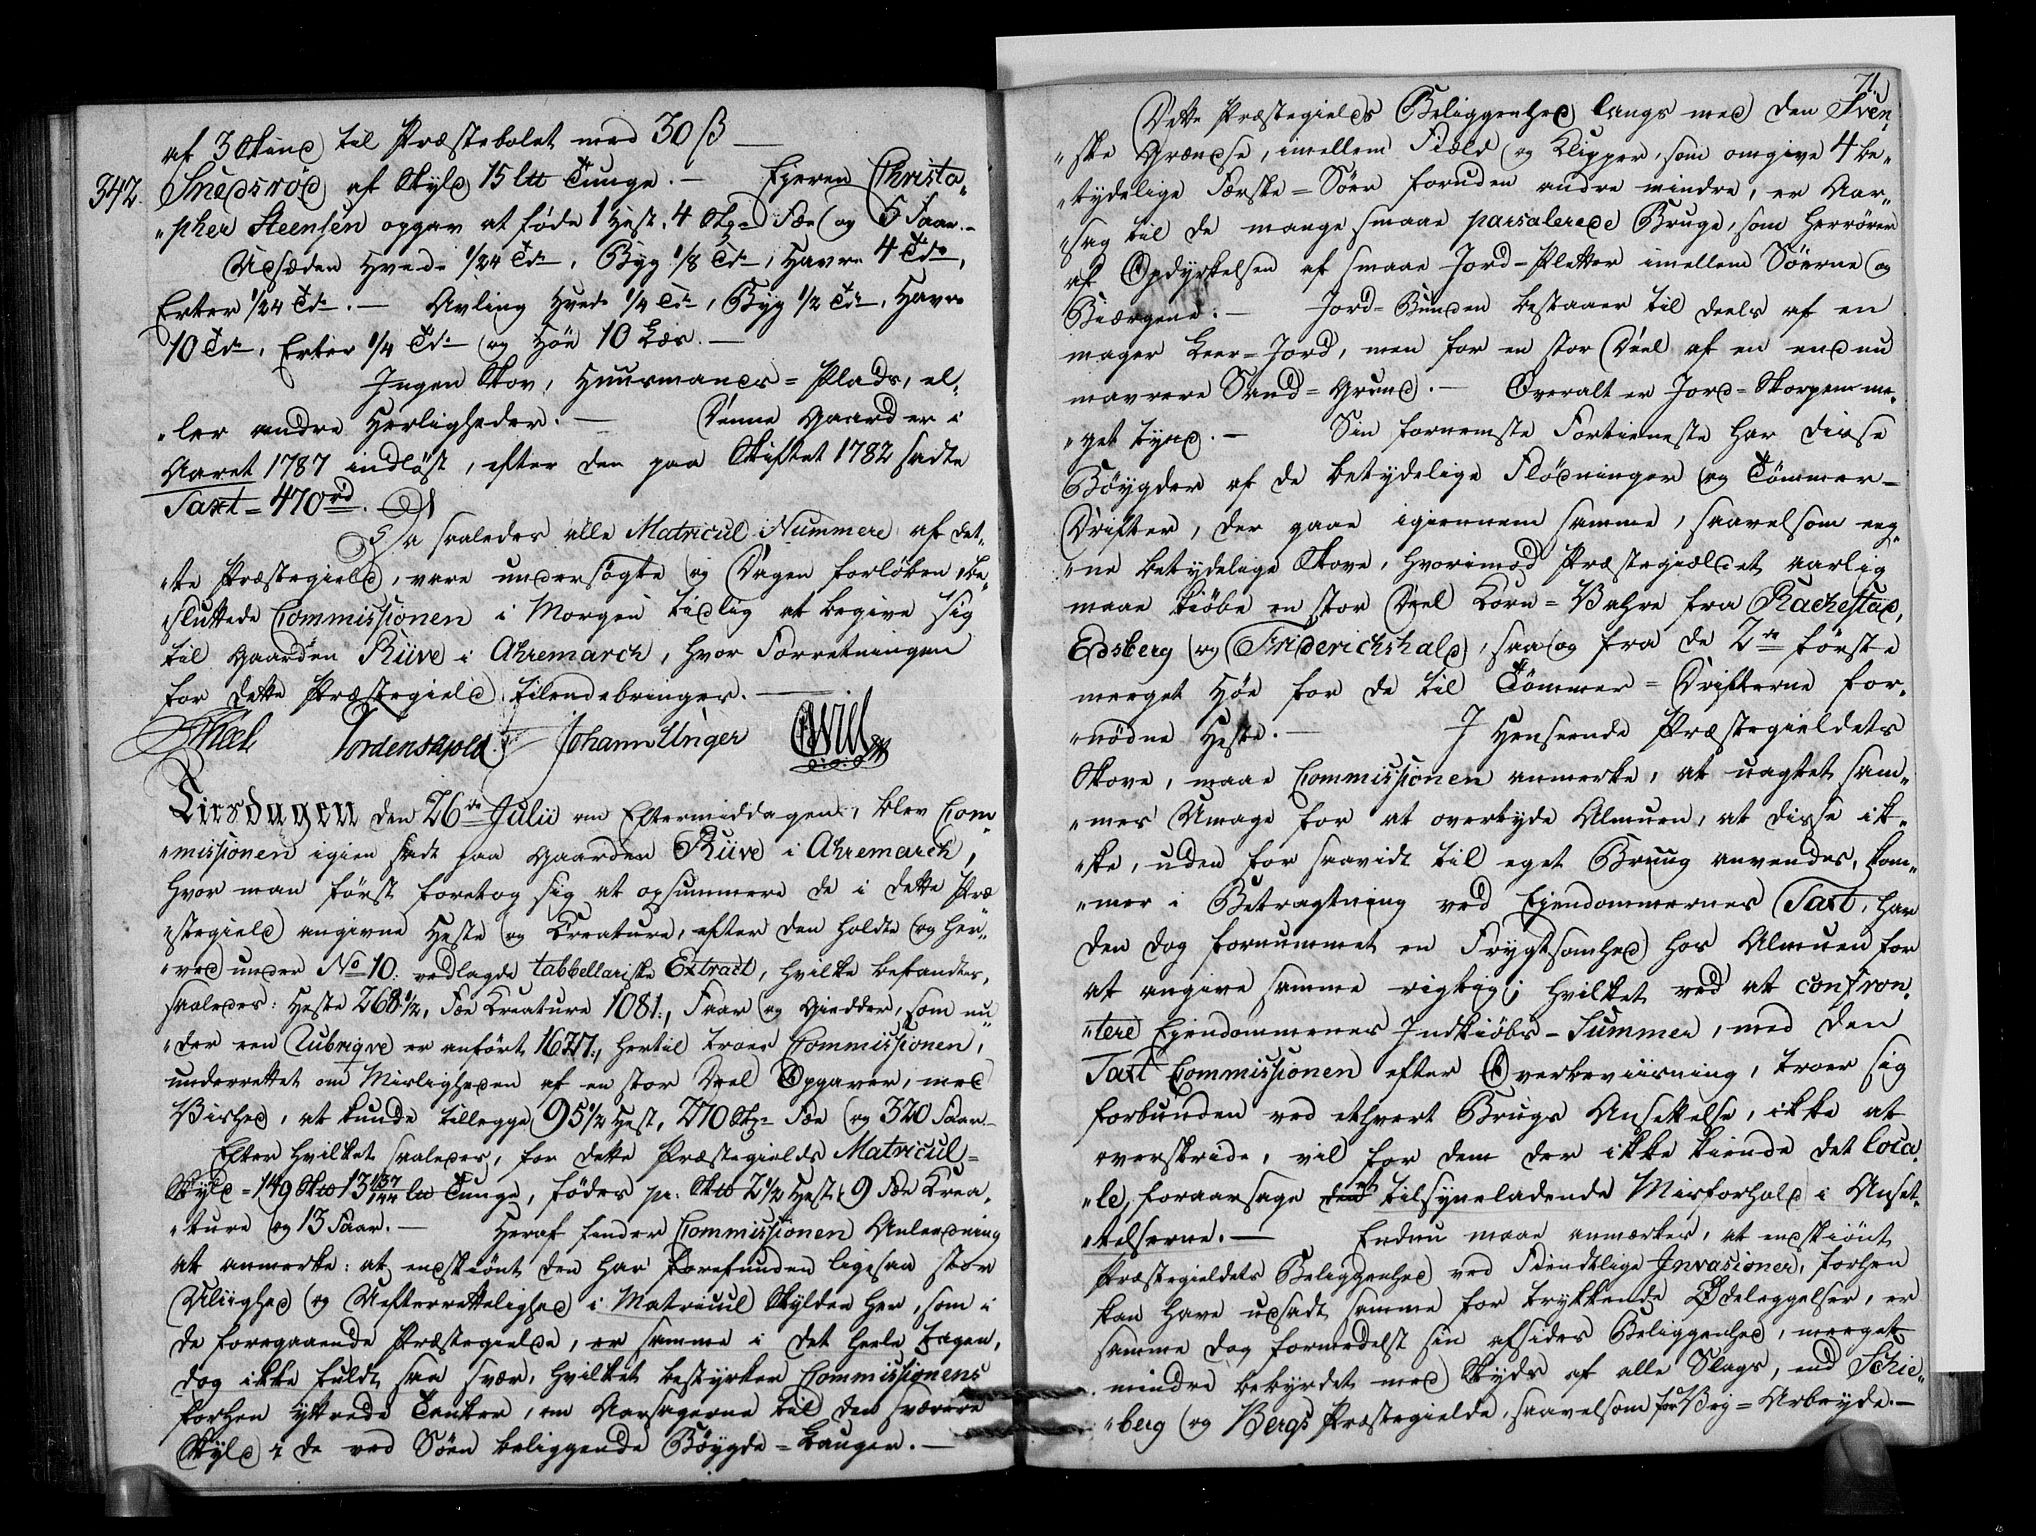 af 3 Skind til Præstebolet med 30 ß
342. Snedsröd af Skyld 15 L℔ Tunge. — Ejeren Christo„
„pher Steensen opgav at föde 1 Hest, 4 Stkr Fæe og 6 Faar. –
Udsæden Hvede 1/24 Tde, Byg 1/8 Tde, Havre 4 Tdr,
Erter 1/24 Tde. — Avling Hvede 1/4 Tde, Byg 1/2 Tde, Havre
10 Tdr, Erter 1/4 Tde og Höe 10 Læs. —
Ingen Skov, Huusmands=Plads, el„
„ler andre Herligheder. — Denne Gaard er i
Aaret 1787 indlöst, efter den paa Skiftet 1782 sadte
Taxt = 470 rd.
Da saaledes alle Matricul Nummere af det„
„te Præstegield, vare undersögte og Dagen forlöben, be„
„sluttede Commissionen i Morgen tidlig at begive sig
til Gaarden Riive i Ahremarch, hvor Forretningen
for dette Præstegield tilendebringes. —
Theel Tordenskjold Johann Unger Will
Tirsdagen den 26de Julii om Eftermiddagen, blev Com„
„missionen igien sadt paa Gaarden Riive i Ahremarch,
hvor man först foretog sig at opsummere de i dette Præ
„stegield angivne Heste og Creature, efter den holdte og her„
„ved under No 10. vedlagde tabbellariske Extract, hvilke befandtes
saaledes: Heste 268 1/2, Fæe Creature 1081., Faar og Giedder, som un„
„der een Rubriqve er anfört 1627., hertil troer Commissionen,
underrettet om Misligheden af en stor Deel Opgaver, med
Vished, at kunde tillegge 95 1/2 Hest, 270 Stkr Fæe og 320 Faar –
Efter hvilket saaledes, for dette Præstegields Matricul=
Skyld = 149 Sk℔ 13 137/144 L℔ Tunge, födes pr. Sk℔ 2 1/2 Hest, 9 Fæe Krea„
„ture og 13 Faar. — Heraf finder Commissionen Anledning
at anmerke: at endskiönt den har forefunden ligesaa stor
Uliighed og Uefterrettelighed i Matricul Skylden her, som i
de foregaaende Præstegielde, er samme i det heele tagen,
dog ikke fuldt saa svær, hvilket bestyrker Commissionens
forhen yttrede Tanker, om Aarsagerne til den sværere
Skyld i de ved Söen beliggende Böygde=Lauger. —
71.
Dette Præstegields Beliggenhed langs med den Sven„
„ske Grændse, imellem Field og Klipper, som omgive 4 be„
„tydelige Færske=Söer foruden andre mindre, er Aar„
„sag til de mange smaae parsalerede Bruge, som herrörer
af Opdyrkelsen af smaae Jord-Pletter imellem Söerne og
Biergene. — Jord=Bunden bestaaer til deels af en
mager Leer=Jord, men for en stor Deel af en endnu
mavrere Sand=Grund. — Overalt er Jord=Skorpen me„
„get tynd. — Sin fornemste Fortieneste har disse
Böygder af de betydelige Flödninger og Tömmer-
Drifter, der gaae igiennem samme, saavelsom eeg„
„ne betydelige Skove, hvorimod Præstegieldet aarlig
maae kiöbe en stor Deel Korn=Vahre fra Rachestad,
Edsberg og Friderichshald, saa og fra de 2de förste
meeget Höe for de til Tömmer=Drifterne for„
„nödne Heste. — I Henseende Præstegieldets
Skove, maae Commissionen anmerke, at uagtet sam„
„mes Umage for at overtyde Almuen, at disse ik„
„ke, uden for saavidt til eget Bruug anvendes, kom„
„mer i Betragtning ved Ejendommernes Taxt, har
den dog fornummet en Frygtsomhed hos Almuen for
at angive samme rigtig; hvilket ved at confron„
„tere Ejendommenes Indkiöbs-Summer, med den
Taxt Commissionen efter Overbeviisning, troer sig
forbunden ved ethvert Brugs Ansettelse, ikke at
overskride, vil for dem der ikke kiende det loca„
„le, foraarsage tilsyneladende Misforhold i Anset„
„telserne. — Endnu maae anmerkes, at endskiönt
Præstegieldets Beliggenhed ved Fiendtlige Invasioner, forhen
kan have udsadt samme for trykkende Ödeleggelser, er
samme dog formedelst sin afsides Beliggenhed, meeget
mindre bebyrdet med Skyds af alle Slags, end Schie„
„berg og Bergs Præstegielde, saavelsom for Vej=Arbeyde. —